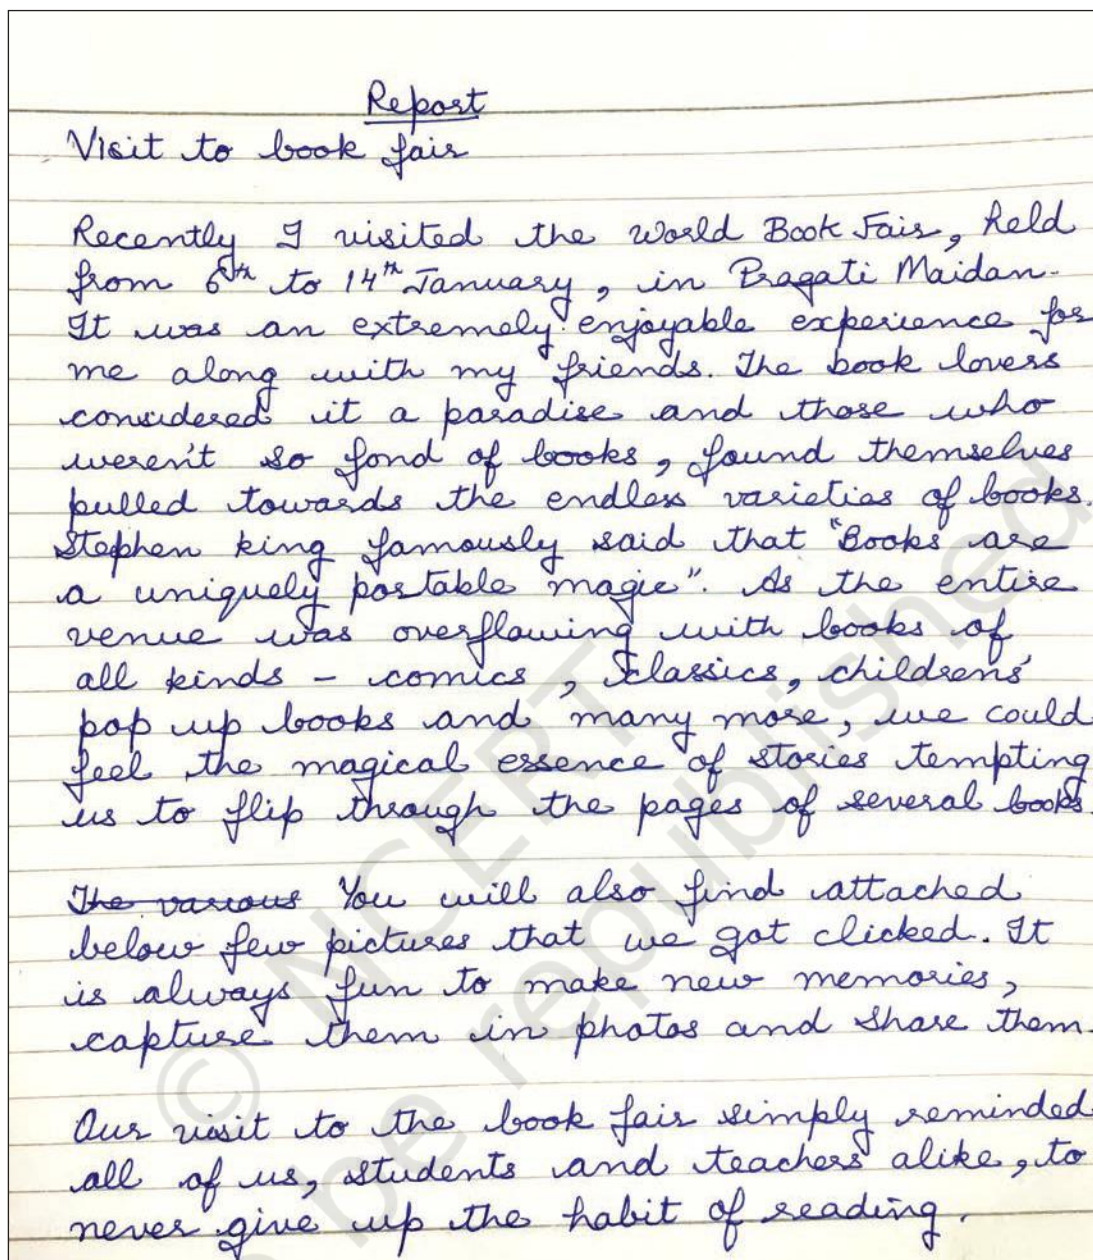 Report
Visit to book fair
Recently I visited the world Book Fair, held
from 6th to 14th January, in Pragati Maidan.
It was an extremely enjoyable experience for
me along with my friends. The book lovers
considered it a paradise and those who
weren't so fond of books, found themselves
pulled towards the endless varieties of books.
Stephen king famously said that "Books are
a uniquely portable magic". As the entire
venue was overflowing with books of
all kinds - comics, classics, childrens'
pop up books and many more, we could
feel the magical essence of stories tempting
us to flip through the pages of several books.
The various You will also find attached
below few pictures that we got clicked. It
is always fun to make new memories,
capture them in photos and share them.
Our visit to the book fair simply reminded
all of us, students and teachers alike, to
never give up the habit of reading.
© NCERT
be republished